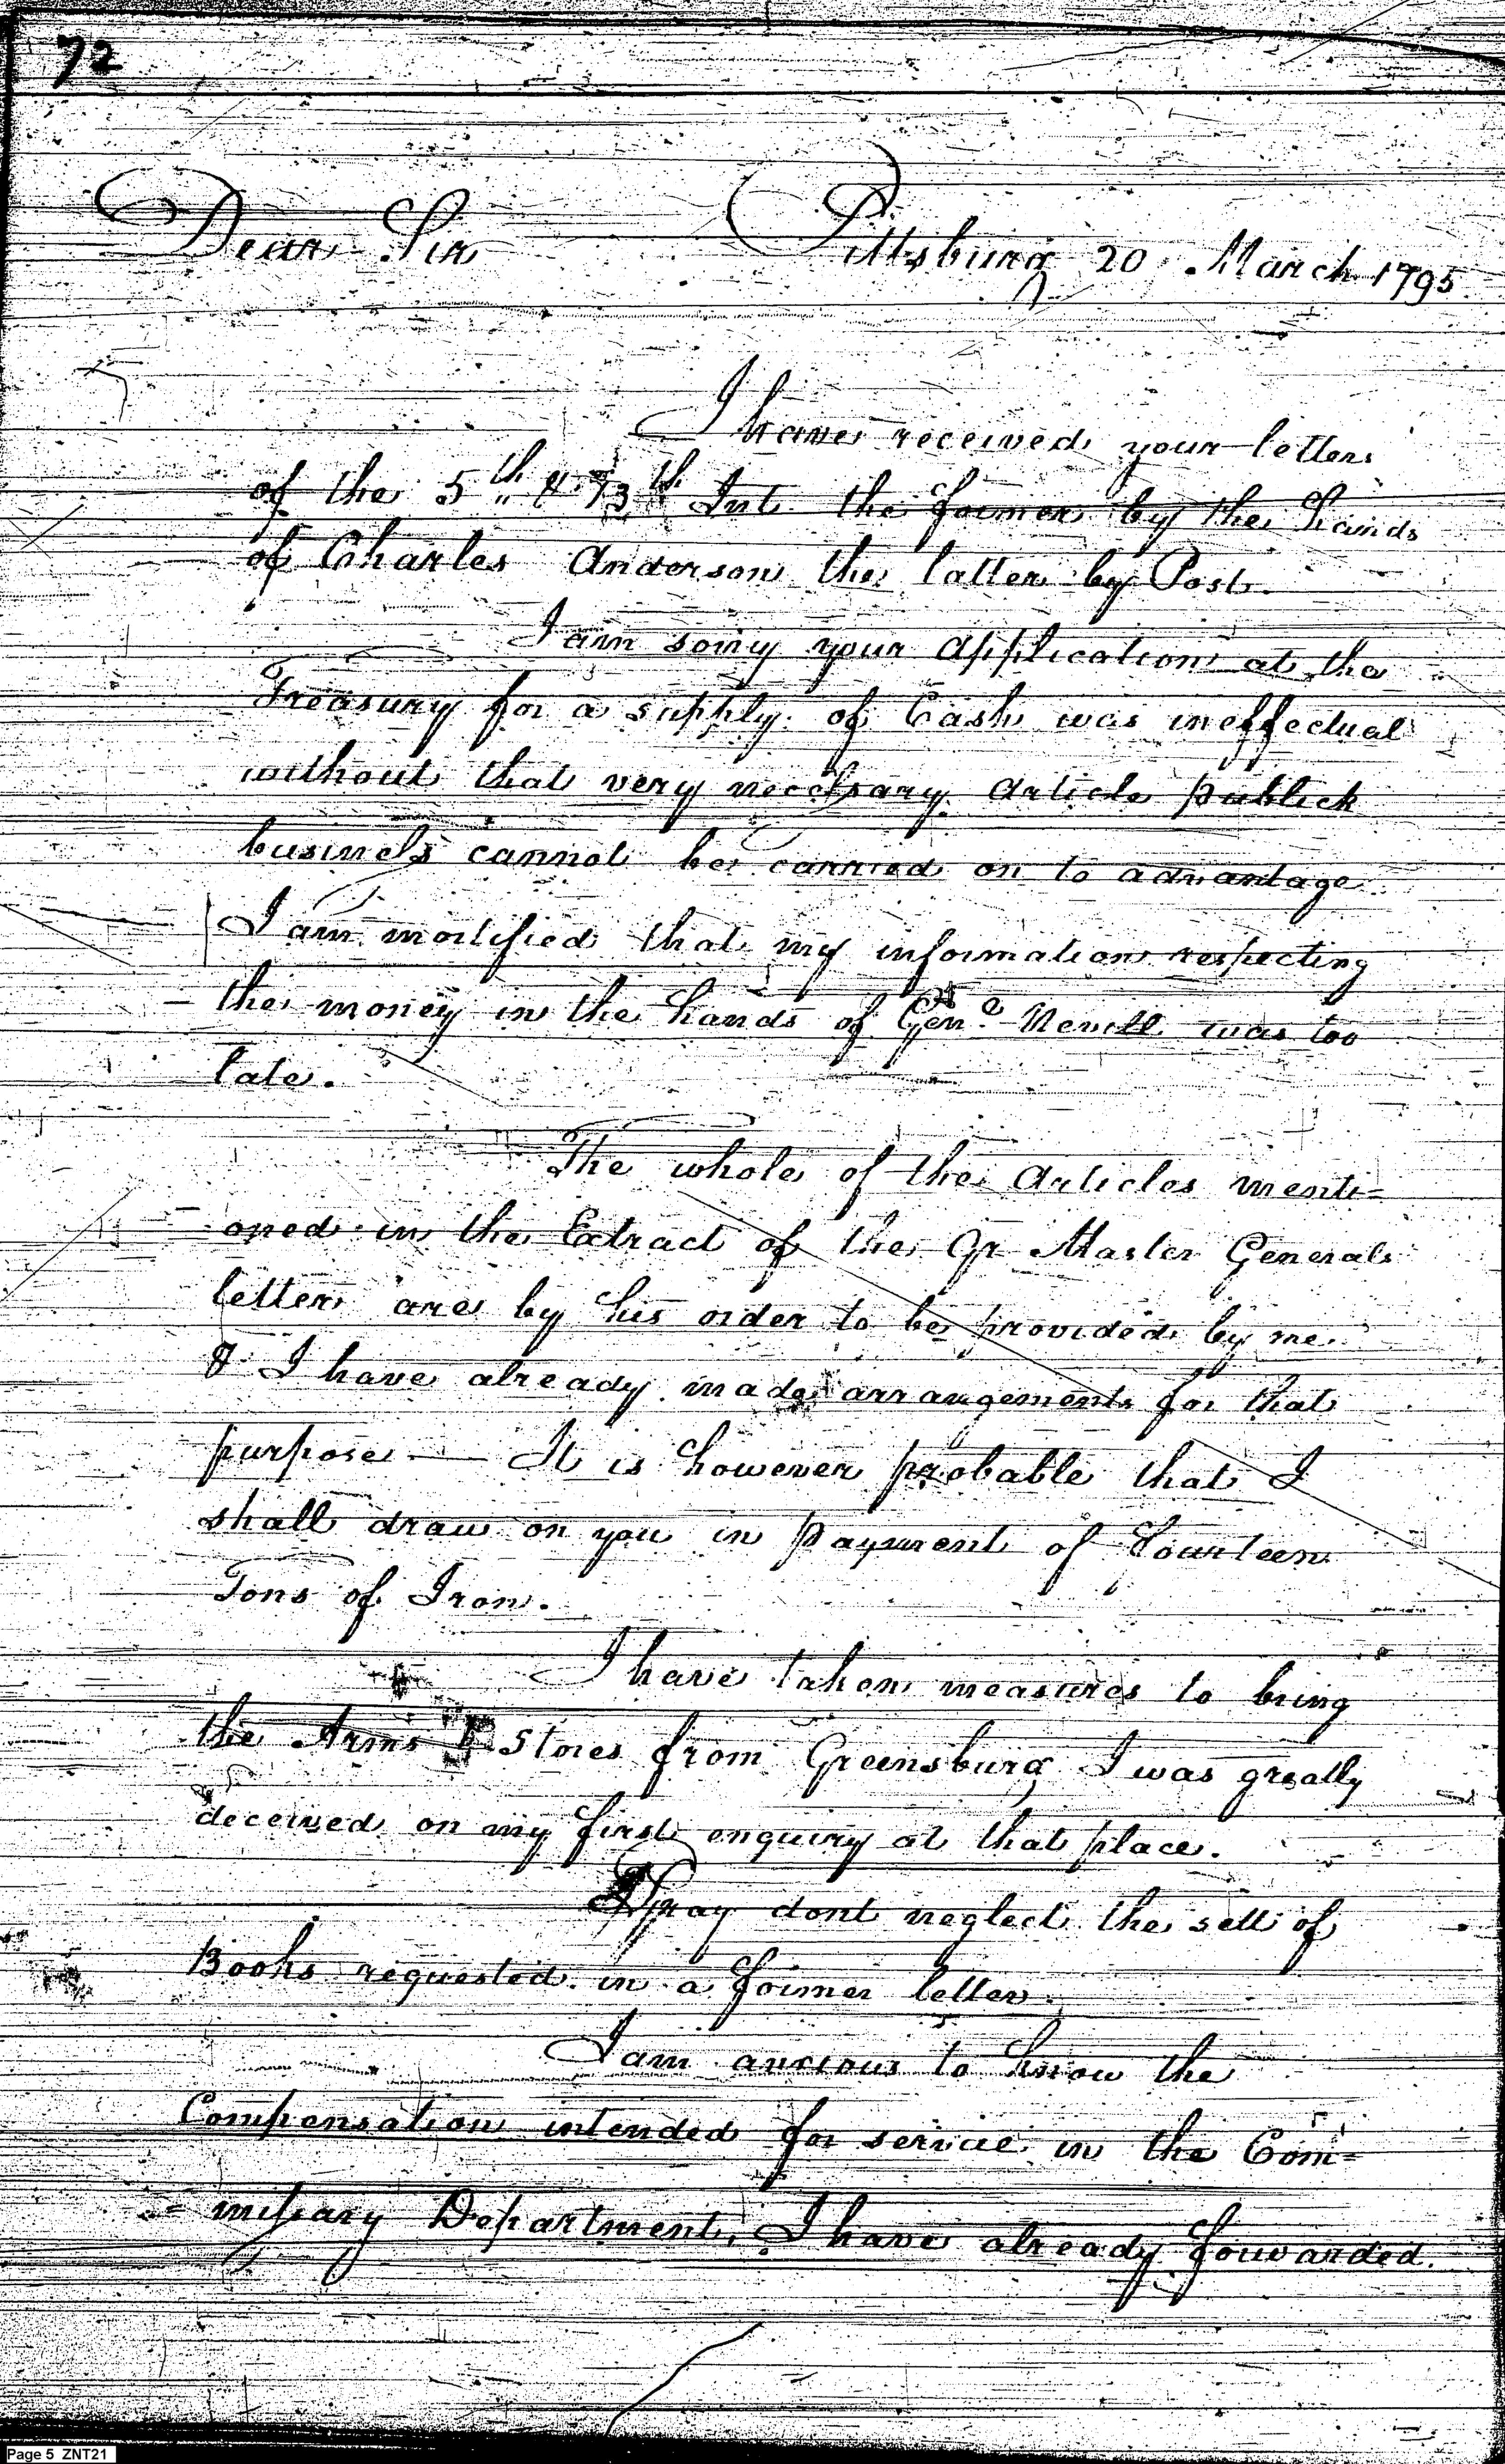 72
Dear Sir Pittsburg 20 March 1795
I have received your letters
of the 5th & 13th Int. the former by the hands
of Charles Anderson the latter by Post.
I am sorry your application at the
Treasury for a supply of Cash was ineffectual
without that very necessary article publick
business cannot be carried on to advantage
I am mortified that my information respecting
the money in the hands of Genl. Nevill was too
late.
The whole of the Articles menti=
oned in the Extract of the Qr Master Generals
letter are by his order to be provided by me
& I have already made arrangements for that
purpose — It is however probable that I
shall draw on you in payment of fourteen
Tons of Iron.
I have taken measures to bring
the Arms & Stores from Greensburg I was greatly
deceived on my first enquiry at that place.
Pray dont neglect the sett of
Books requested in a former letter.
I am anxious to know the
Compensation intended for service in the Com=
=missary Department, I have already forwarded.
Page 5 ZNT21